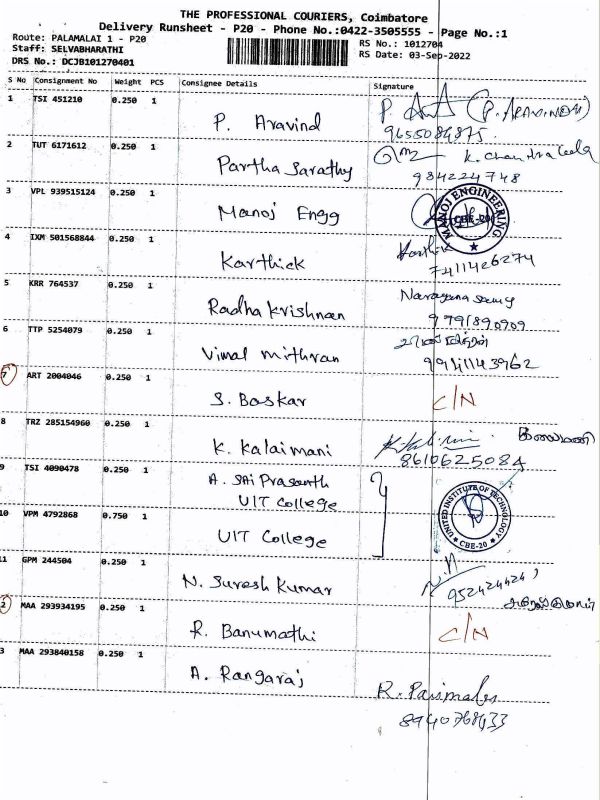 THE PROFESSIONAL COURIERS, Coimbatore
Delivery Runsheet - P20 - Phone No.:0422-3505555 - Page No.:1
Route: PALAMALAI 1 - P20
Staff: SELVABHARATHI
DRS No.: DCJB101270401
RS No.: 1012704
RS Date: 03-Sep-2022
S No Consignment No Weight PCS Consignee Details Signature
1 TSI 451210 0.250 1 P. Aravind
(P. ARAVINDH)
9655084875.
2 TUT 6171612 0.250 1 Partha Sarathy
9842224748
3 VPL 939515124 0.250 1 Manoj Engg
MANOJ ENGINEERING
CBE-20
4 IXM 501568844 0.250 1 Karthick
Karthik
7411426274
5 KRR 764537 0.250 1 Radha Krishnan
Narayana samy
9791890909
6 TTP 5254079 0.250 1 Vimal Mithran
9941143962
7 ART 2004046 0.250 1 S. Baskar C/N
8 TRZ 285154960 0.250 1 K. Kalaimani
8610625084
9 TSI 4090478 0.250 1 A. Sai Prasanth
UIT College
10 VPM 4792868 0.750 1 UIT College
UNITED INSTITUTE OF TECHNOLOGY
CBE-20
11 GPM 244504 0.250 1 N. Suresh Kumar
2 MAA 293934195 0.250 1 R. Banumathi C/N
3 MAA 293840158 0.250 1 A. Rangaraj
R. Parimala
8940768433